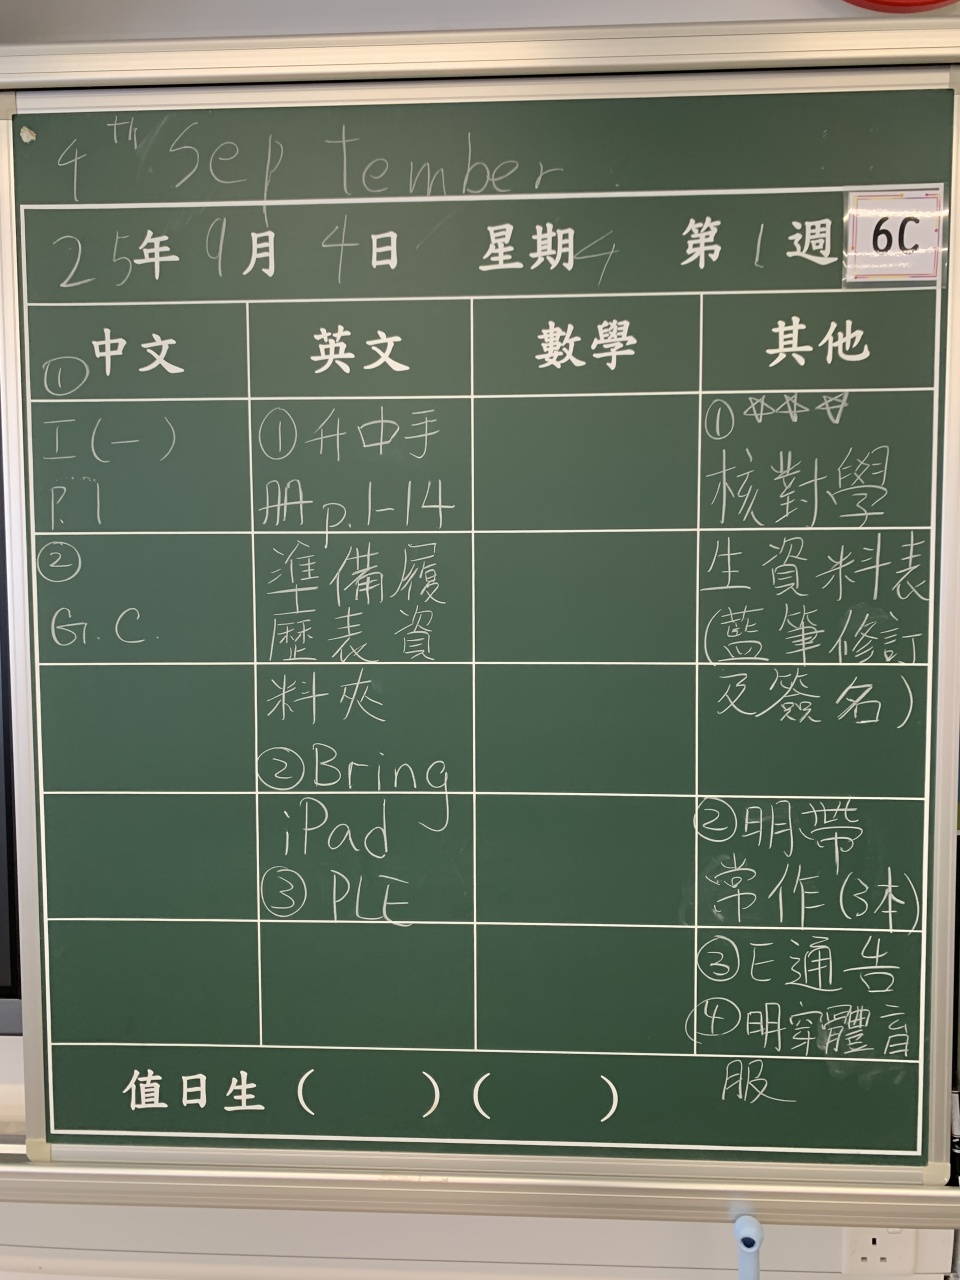 4th September
25年9月4日 星期4 第1週 6C
中文 英文 數學 其他
①
工(一)
P.1
②
G.C.
①升中手
冊p.1-14
準備履
歷表資
料夾
②Bring
iPad
③PLE
①☆☆☆
核對學
生資料表
(藍筆修訂
及簽名)
②明帶
常作(3本)
③E通告
④明穿體育
服
值日生 ( ) ( )